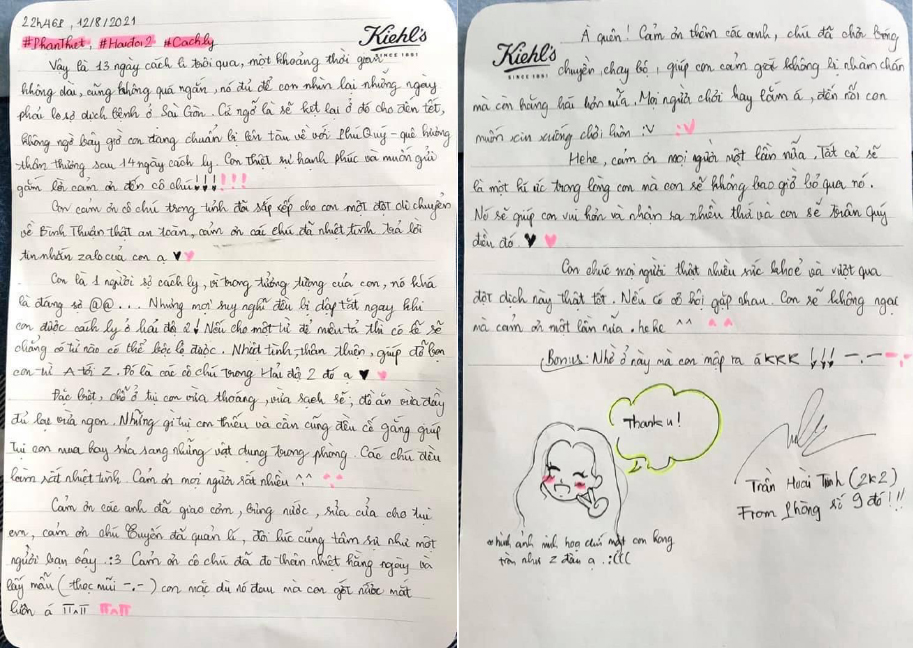 22h46', 12/8/2021
#PhanThiet, #Haidoi2 #Cachly
Kiehl's
SINCE 1851
Vậy là 13 ngày cách li trôi qua, một khoảng thời gian
không dài, cũng không quá ngắn, nó đủ để con nhìn lại những ngày
phải lo sợ dịch bệnh ở Sài Gòn. Cứ ngỡ là sẽ kẹt lại ở đó cho đến tết,
không ngờ bây giờ con đang chuẩn bị lên tàu về với Phú Quý - quê hương
thân thương sau 14 ngày cách ly. Con thiệt sự hạnh phúc và muốn gửi
gắm lời cảm ơn đến cô chú!!! !!!
Con cảm ơn cô chú trong tỉnh đã sắp xếp cho con một đợt di chuyển
về Bình Thuận thật an toàn, cảm ơn các chú đã nhiệt tình trả lời
tin nhắn zalo của con ạ ♥♥
Con là 1 người sợ cách ly, vì trong tưởng tượng của con, nó khá
là đáng sợ @@... Nhưng mọi suy nghĩ đều bị dập tắt ngay khi
con được cách ly ở hải đội 2! Nếu cho một từ để miêu tả thì có lẽ sẽ
chẳng có từ nào có thể bộc lộ được. Nhiệt tình, thân thiện, giúp đỡ bọn
con từ A tới Z. Đó là các cô chú trong Hải đội 2 đó ạ ♥ ♥
Đặc biệt, chỗ ở tụi con vừa thoáng, vừa sạch sẽ, đồ ăn vừa đầy
đủ lại vừa ngon. Những gì tụi con thiếu và cần cũng đều cố gắng giúp
tụi con mua hay sửa sang những vật dụng trong phòng. Các chú đều
làm rất nhiệt tình. Cảm ơn mọi người rất nhiều ^^
Cảm ơn các anh đã giao cơm, bưng nước, sửa cửa cho tụi
em, cảm ơn chú Tuyến đã quản lí, đôi lúc cũng tâm sự như một
người bạn vậy :3 Cảm ơn cô chú đã đo thân nhiệt hằng ngày và
lấy mẫu (thọc mũi -.-) con mặc dù nó đau mà con gớt nước mắt
luôn á π^π π^π
Kiehl's
SINCE 1851
À quên! Cảm ơn thêm các anh, chú đã chơi bóng
chuyền, chạy bộ, giúp con cảm giác không bị nhàm chán
mà còn hăng hái hơn nữa. Mọi người chơi hay lắm á, đến nỗi con
muốn xin xuống chơi luôn :V :V
Hehe, cảm ơn mọi người một lần nữa. Tất cả sẽ
là một kí ức trong lòng con mà con sẽ không bao giờ bỏ qua nó.
Nó sẽ giúp con vui hơn và nhận ra nhiều thứ và con sẽ trân quý
điều đó. ♥ ♥
Con chúc mọi người thật nhiều sức khoẻ và vượt qua
đợt dịch này thật tốt. Nếu có cơ hội gặp nhau. Con sẽ không ngại
mà cảm ơn một lần nữa. hehe ^^ ^^
Bonus: Nhờ ở này mà con mập ra á KKK !!! -.- -.-
Thank u!
Trần Hoài Tinh (2k2)
From phòng số 9 đó!!!
*hình ảnh minh hoạ chứ mặt con hong
tròn như z đâu ạ :(((